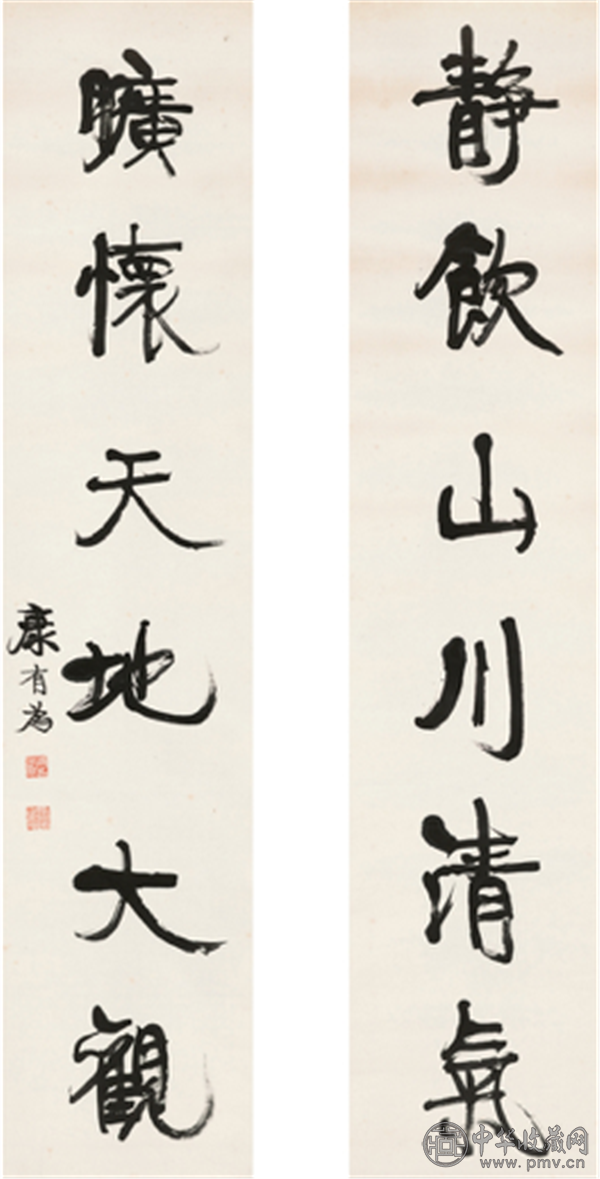 静飲山川清氣
曠懷天地大觀
康有為
中华收藏网
www.pmv.cn